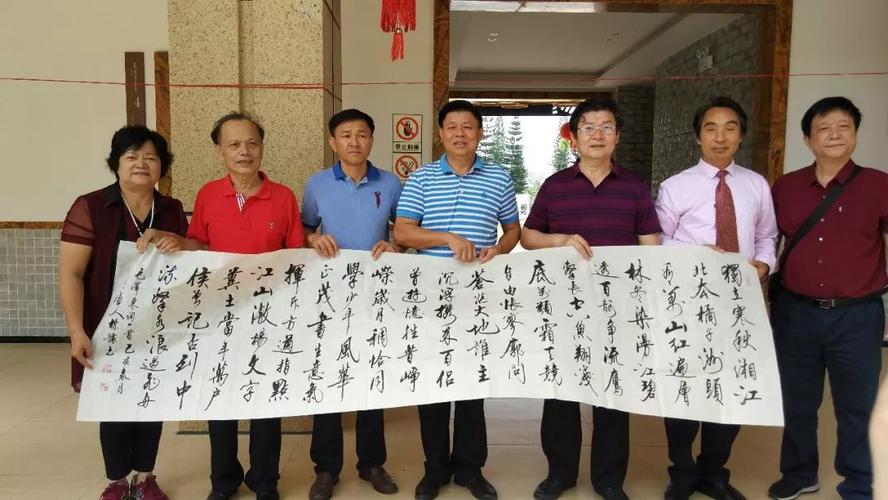 4
獨立寒秋湘江
北去橘子洲頭
看萬山紅遍層
林盡染漫江碧
透百舸爭流鷹
擊長空魚翔淺
底萬類霜天競
自由悵寥廓問
蒼茫大地誰主
沉浮攜來百侶
曾遊憶往昔崢
嶸歲月稠恰同
學少年風華
正茂書生意氣
揮斥方遒指點
江山激揚文字
糞土當年萬戶
侯曾記否到中
流擊水浪遏飛舟
毛澤東詞一首己亥春月